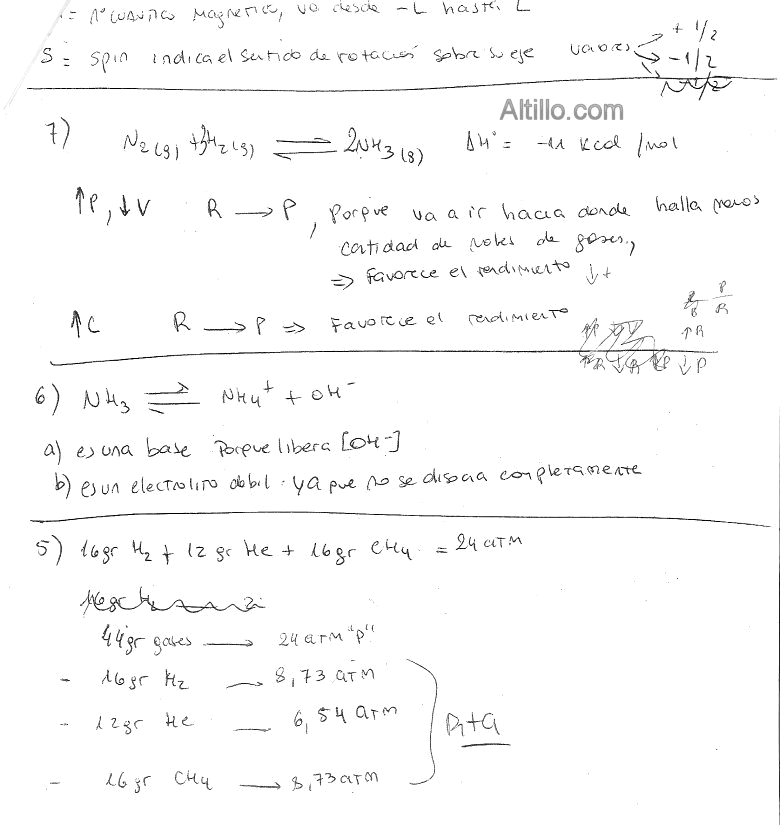 = n° cuántico magnetico, va desde -L hasta L
S = spin indica el sentido de rotación sobre su eje valores + 1/2
- 1/2
Altillo.com
7) N2(g) + 3H2(g) ⇌ 2NH3(g) ΔH° = -11 Kcal/mol
↑P, ↓V R → P, Porque va a ir hacia donde halla menos
cantidad de moles de gases,
⇒ Favorece el rendimiento ↓+
↑C R → P ⇒ Favorece el rendimiento
P/R
↑R
↓P
6) NH3 ⇌ NH4+ + OH-
a) es una base Porque libera [OH-]
b) es un electrolito debil. ya que no se disocia completamente
5) 16gr H2 + 12 gr He + 16gr CH4 = 24 atm
44gr gases → 24 atm "P"
- 16gr H2 — 8,73 atm
- 12gr He — 6,54 atm
Rta
- 16 gr CH4 → 8,73 atm